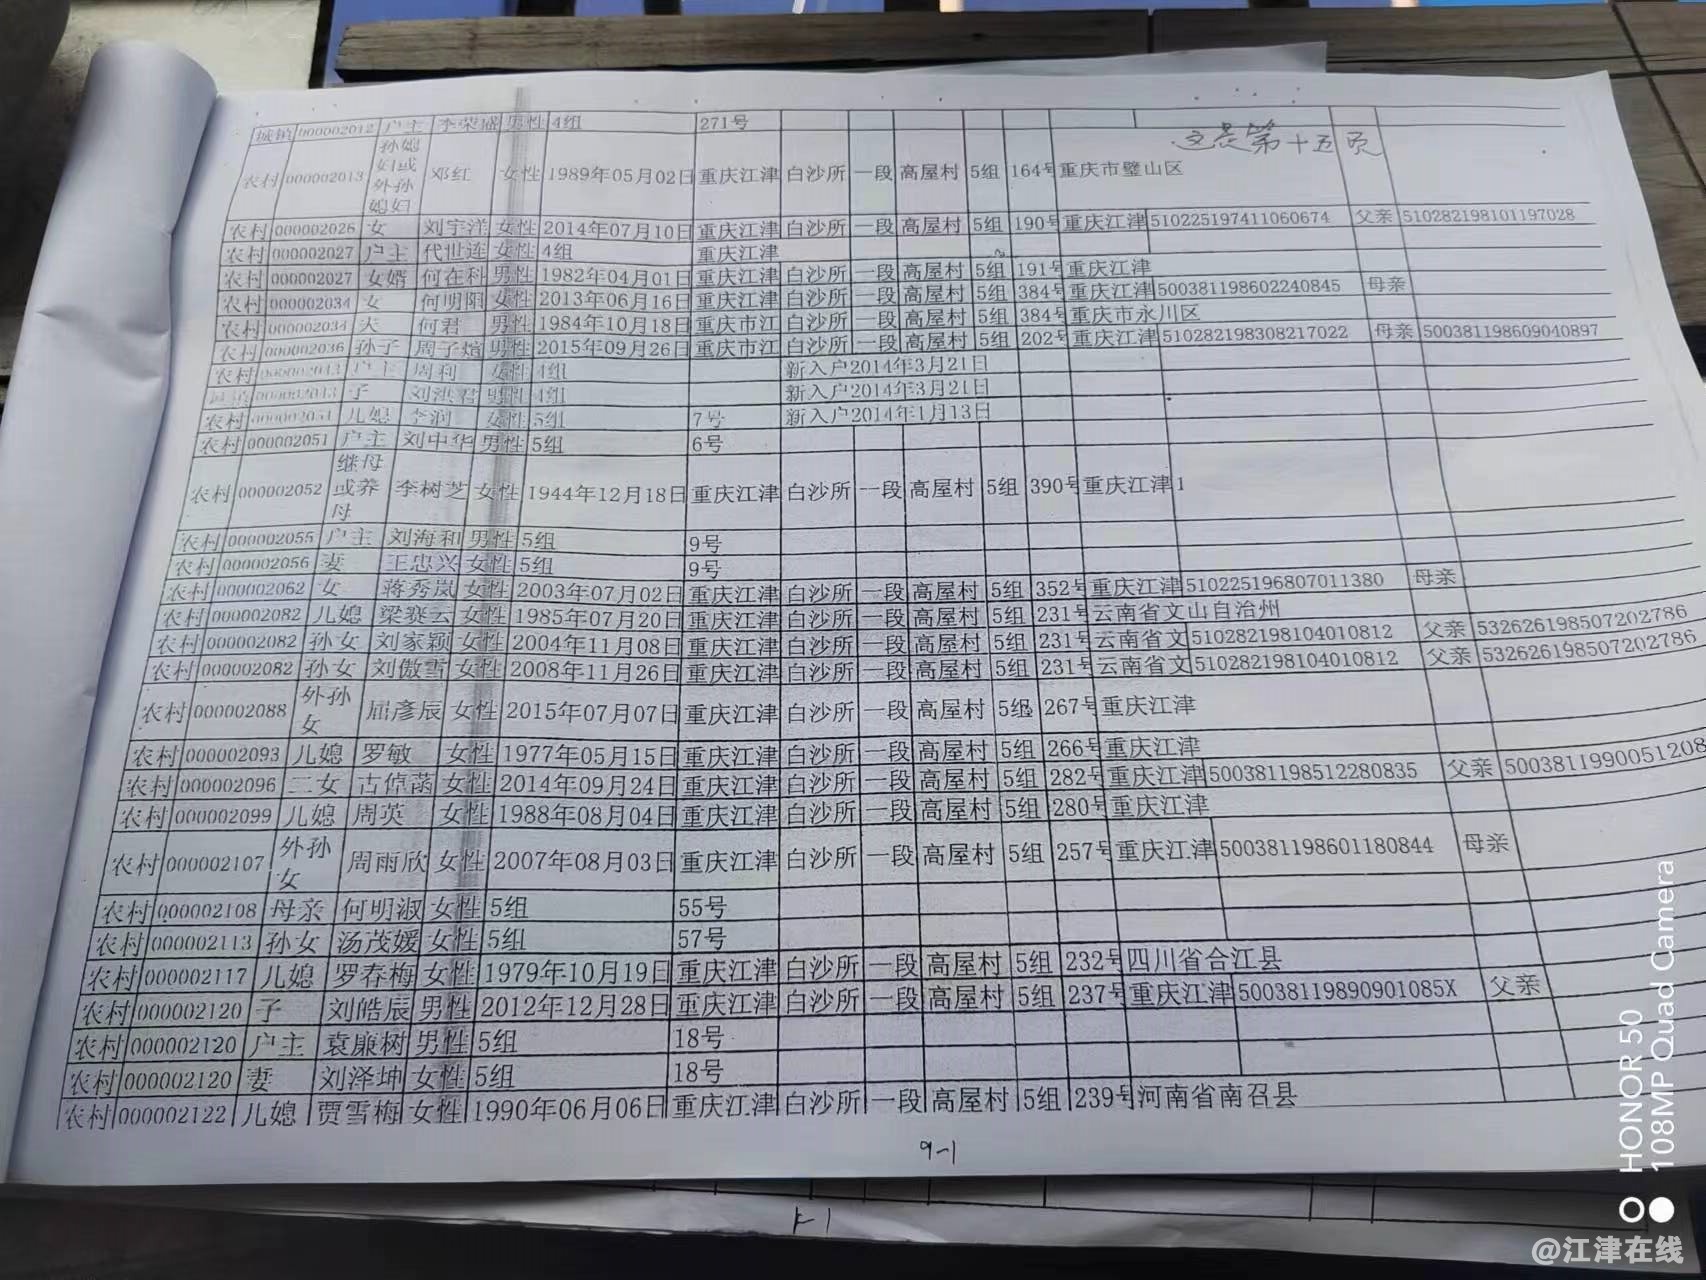 城镇 000002012 户主 李荣盛 男性 4组 271号
这是第十五页
农村 000002013 孙媳妇或外孙媳妇 邓红 女性 1989年05月02日 重庆江津 白沙所 一段 高屋村 5组 164号 重庆市璧山区
农村 000002026 女 刘宇洋 女性 2014年07月10日 重庆江津 白沙所 一段 高屋村 5组 190号 重庆江津 510225197411060674 父亲 510282198101197028
农村 000002027 户主 代世连 女性 4组 重庆江津
农村 000002027 女婿 何在科 男性 1982年04月01日 重庆江津 白沙所 一段 高屋村 5组 191号 重庆江津
农村 000002034 女 何明阳 女性 2013年06月16日 重庆江津 白沙所 一段 高屋村 5组 384号 重庆江津 500381198602240845 母亲
农村 000002034 夫 何君 男性 1984年10月18日 重庆市江 白沙所 一段 高屋村 5组 384号 重庆市永川区
农村 000002036 孙子 周子煊 男性 2015年09月26日 重庆市江 白沙所 一段 高屋村 5组 202号 重庆江津 510282198308217022 母亲 500381198609040897
农村 000002043 户主 周利 女性 4组 新入户2014年3月21日
000002043 子 刘洪君 男性 4组 新入户2014年3月21日
农村 000002051 儿媳 李润 女性 5组 7号 新入户2014年1月13日
农村 000002051 户主 刘中华 男性 5组 6号
农村 000002052 继母或养母 李树芝 女性 1944年12月18日 重庆江津 白沙所 一段 高屋村 5组 390号 重庆江津1
农村 000002055 户主 刘海和 男性 5组 9号
农村 000002056 妻 王忠兴 女性 5组 9号
农村 000002062 女 蒋秀岚 女性 2003年07月02日 重庆江津 白沙所 一段 高屋村 5组 352号 重庆江津 510225196807011380 母亲
农村 000002082 儿媳 梁赛云 女性 1985年07月20日 重庆江津 白沙所 一段 高屋村 5组 231号 云南省文山自治州
农村 000002082 孙女 刘家颖 女性 2004年11月08日 重庆江津 白沙所 一段 高屋村 5组 231号 云南省文 510282198104010812 父亲 532626198507202786
农村 000002082 孙女 刘傲雪 女性 2008年11月26日 重庆江津 白沙所 一段 高屋村 5组 231号 云南省文 510282198104010812 父亲 532626198507202786
农村 000002088 外孙女 屈彦辰 女性 2015年07月07日 重庆江津 白沙所 一段 高屋村 5组 267号 重庆江津
农村 000002093 儿媳 罗敏 女性 1977年05月15日 重庆江津 白沙所 一段 高屋村 5组 266号 重庆江津
农村 000002096 二女 古倬菡 女性 2014年09月24日 重庆江津 白沙所 一段 高屋村 5组 282号 重庆江津 500381198512280835 父亲 50038119900051208
农村 000002099 儿媳 周英 女性 1988年08月04日 重庆江津 白沙所 一段 高屋村 5组 280号 重庆江津
农村 000002107 外孙女 周雨欣 女性 2007年08月03日 重庆江津 白沙所 一段 高屋村 5组 257号 重庆江津 500381198601180844 母亲
农村 000002108 母亲 何明淑 女性 5组 55号
农村 000002113 孙女 汤茂媛 女性 5组 57号
农村 000002117 儿媳 罗春梅 女性 1979年10月19日 重庆江津 白沙所 一段 高屋村 5组 232号 四川省合江县
农村 000002120 子 刘皓辰 男性 2012年12月28日 重庆江津 白沙所 一段 高屋村 5组 237号 重庆江津 50038119890901085X 父亲
农村 000002120 户主 袁廉树 男性 5组 18号
农村 000002120 妻 刘泽坤 女性 5组 18号
农村 000002122 儿媳 贾雪梅 女性 1990年06月06日 重庆江津 白沙所 一段 高屋村 5组 239号 河南省南召县
9-1
HONOR 50
108MP Quad Camera
@江津在线